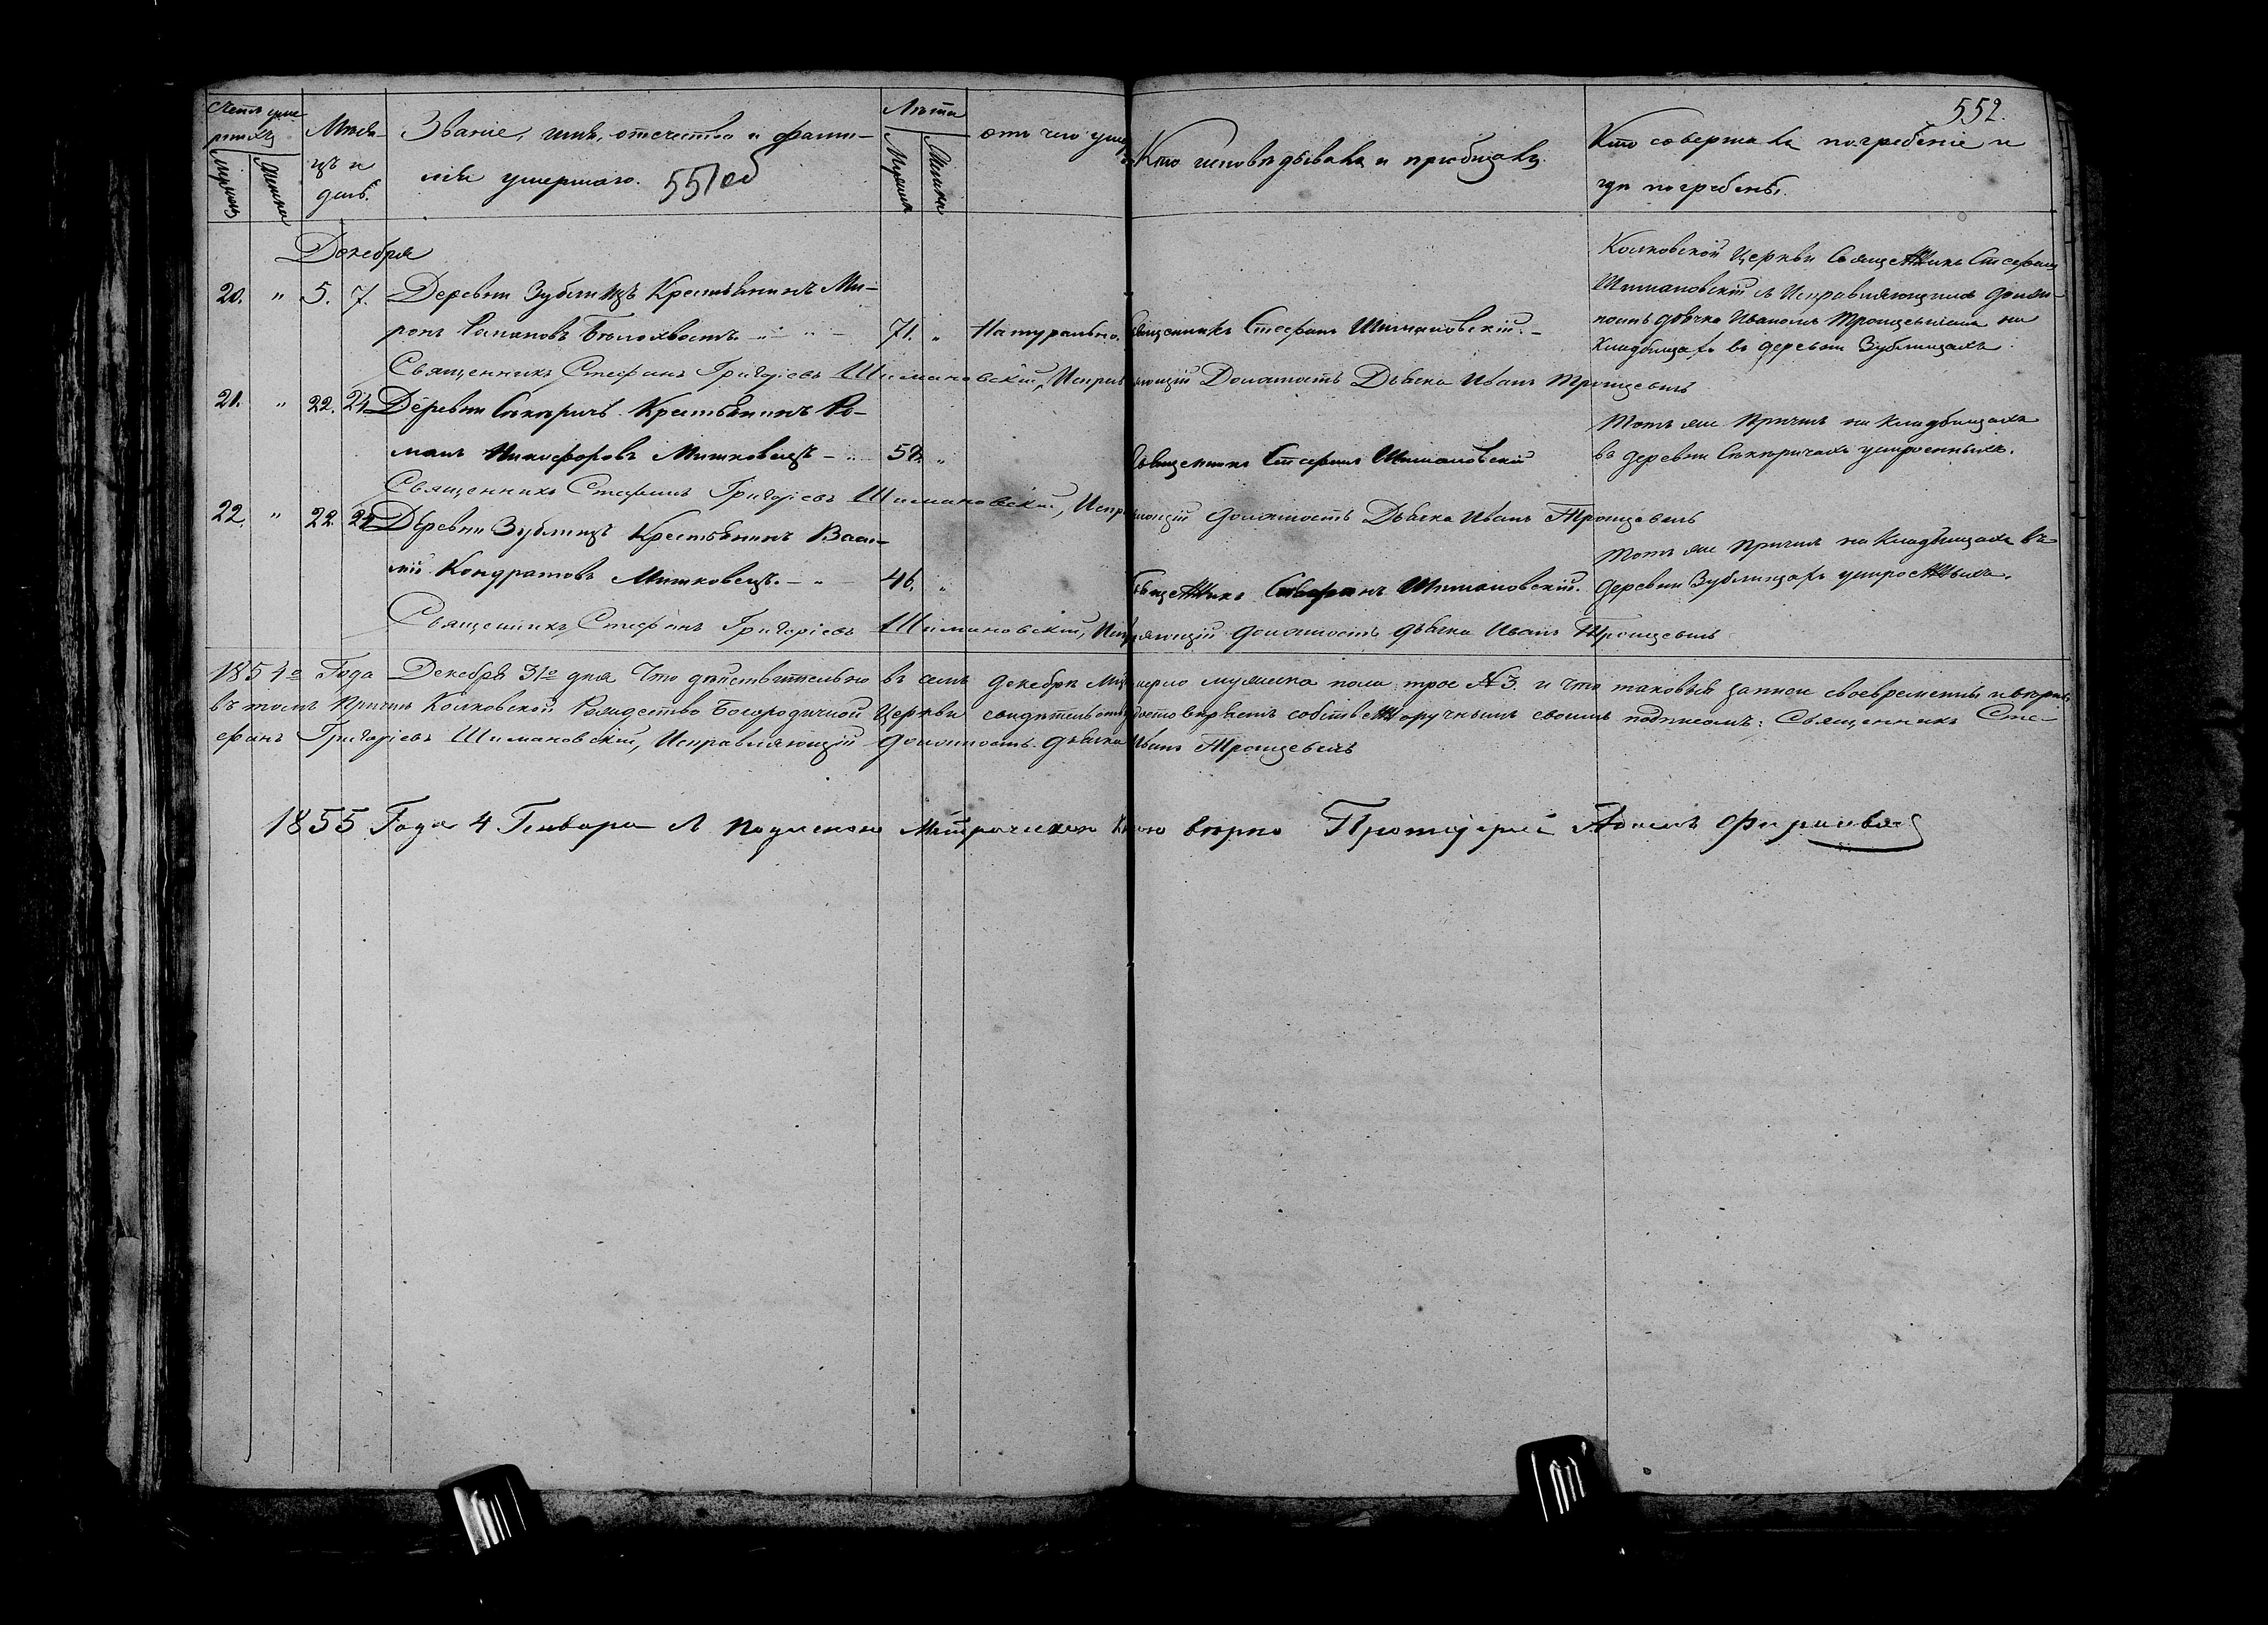 Счетъ уме
ршихъ
Мужеска
Женска
Мѣся-
цъ и
день.
Званіе, имя, отечество и фами-
лія умершаго. 551об
Лѣта
Мужеска
Женска
отъ чего умер
Кто исповѣдывалъ и пріобщалъ.
552.
Кто совершалъ погребеніе и
гдѣ погребены.
Декабря
20. " 5. 7. Деревни Зублищъ Крестьянинъ Ми-
ронъ Романовъ Бѣлохвостъ. 71. " Натурально. Священникъ Стефанъ Шимановскій.
Колковской Церкви Священникъ Стефанъ
Шимановскій съ Исправляющимъ долж-
ность дьячка Иваномъ Трощевичемъ на
Кладбищахъ въ деревни Зублищахъ.
Священникъ Стефанъ Григоріевъ Шимановскій, Исправляющій Должность Дьячка Иванъ Трощевичъ
21. " 22. 24 Деревни Сѣкиричъ Крестьянинъ Ро-
манъ Никифоровъ Мишковецъ 58. " Священникъ Стефанъ Шимановскій
Тотъ же Причтъ на Кладбищахъ
въ деревни Сѣкиричахъ устроенныхъ.
Священникъ Стефанъ Григоріевъ Шимановскій, Исправляющій должность Дьячка Иванъ Трощевичъ
22. " 22. 24 Деревни Зублищъ Крестьянинъ Васи-
лій Кондратовъ Мишковецъ. 46. " Священникъ Стефанъ Шимановскій.
Тотъ же Причтъ на Кладбищахъ въ
деревни Зублищахъ устроенныхъ.
Священникъ Стефанъ Григоріевъ Шимановскій, Исправляющій должность дьячка Иванъ Трощевичъ
1854го Года Декабря 31го дня Что дѣйствительно въ семъ декабрѣ Мцѣ умерло мужеска пола трое № 3. и что таковыя записи своевременны и вѣрны
въ томъ Причтъ Колковской Рождество Богородичной Церкви свидѣтельствуетъ собственноручнымъ своимъ подписомъ: Священникъ Сте-
фанъ Григоріевъ Шимановскій, Исправляющій должность дьячка Иванъ Трощевичъ
1855 Года 4 Генваря С подлиною Метрическою Книгою вѣрно Протоіерей Адамъ